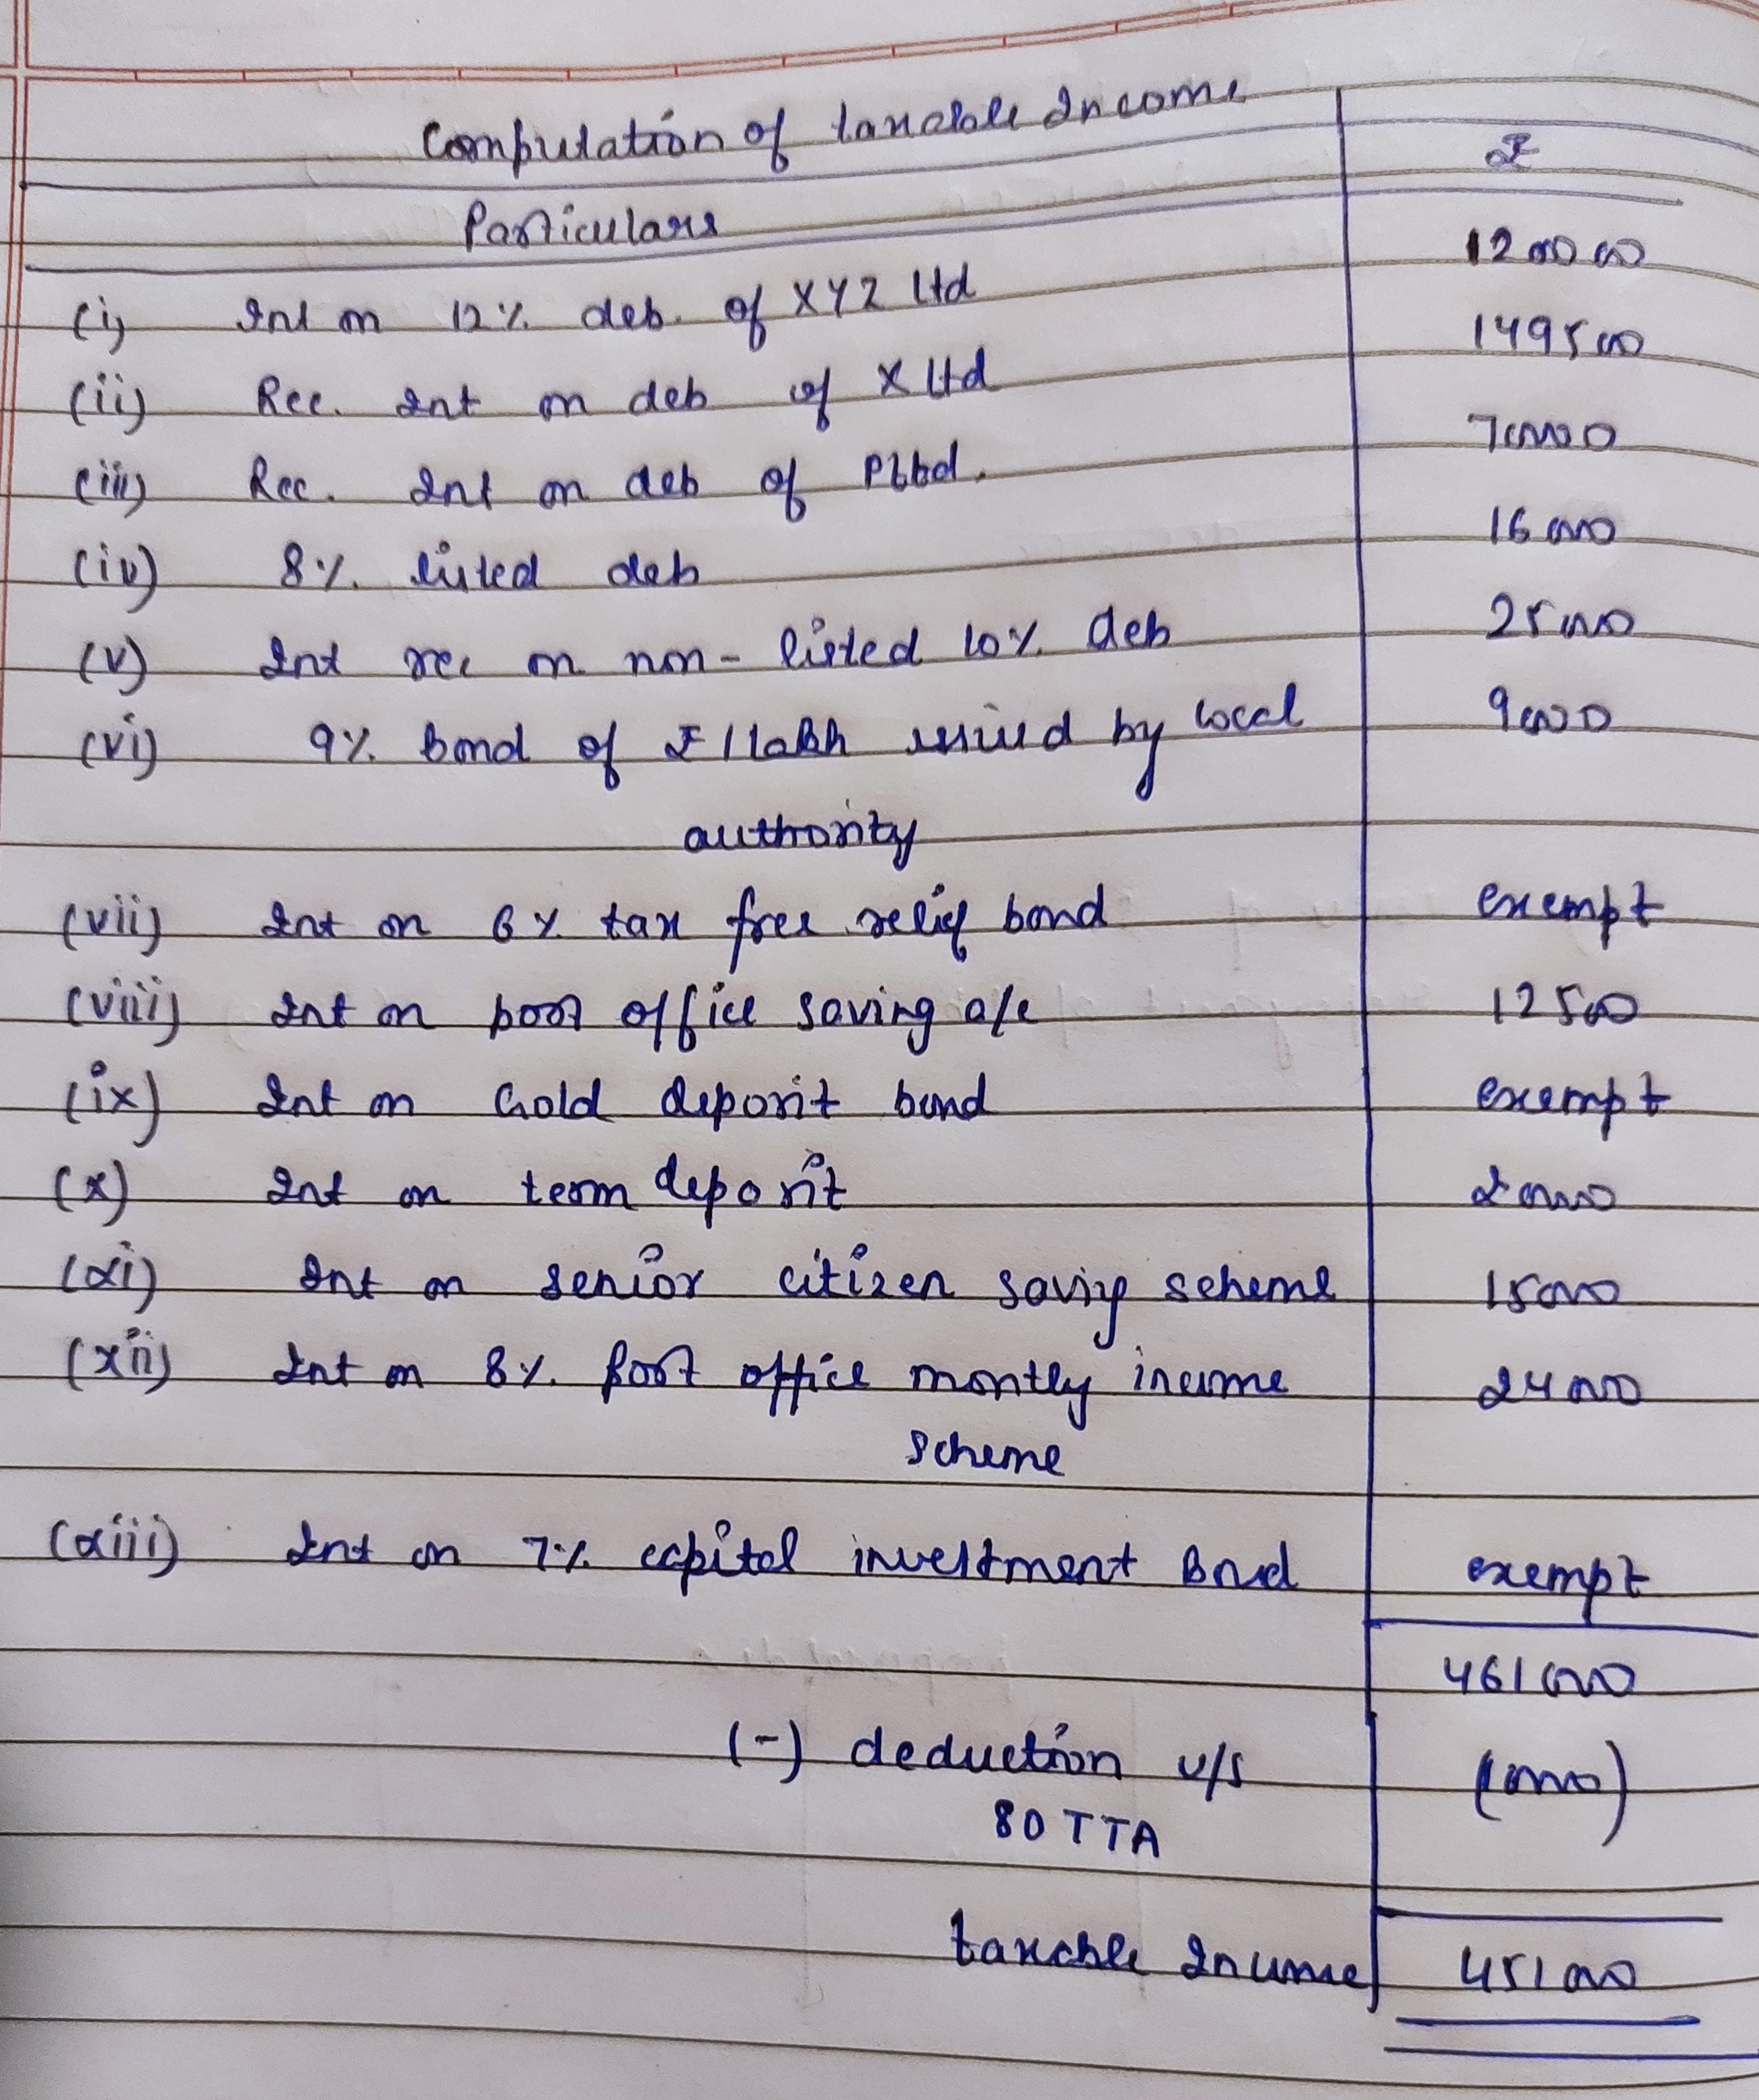 Computation of taxable Income
₹
Particulars
(i) Int on 12% deb. of XYZ Ltd 120000
(ii) Rec. Int on deb of X Ltd 149500
(iii) Rec. Int on deb of P Ltd. 70000
(iv) 8% listed deb 16000
(v) Int rec on non-listed 10% Deb 25000
(vi) 9% bond of ₹ 1 lakh issued by local 9000
authority
(vii) Int on 6% tax free relief bond exempt
(viii) Int on post office saving a/c 12500
(ix) Int on Gold deposit bond exempt
(x) Int on term deposit 20000
(xi) Int on senior citizen saving scheme 15000
(xii) Int on 8% Post office montly income 24000
scheme
(xiii) Int on 7% capital investment Bond exempt
461000
(-) deduction u/s (10000)
80 TTA
taxable Income 451000